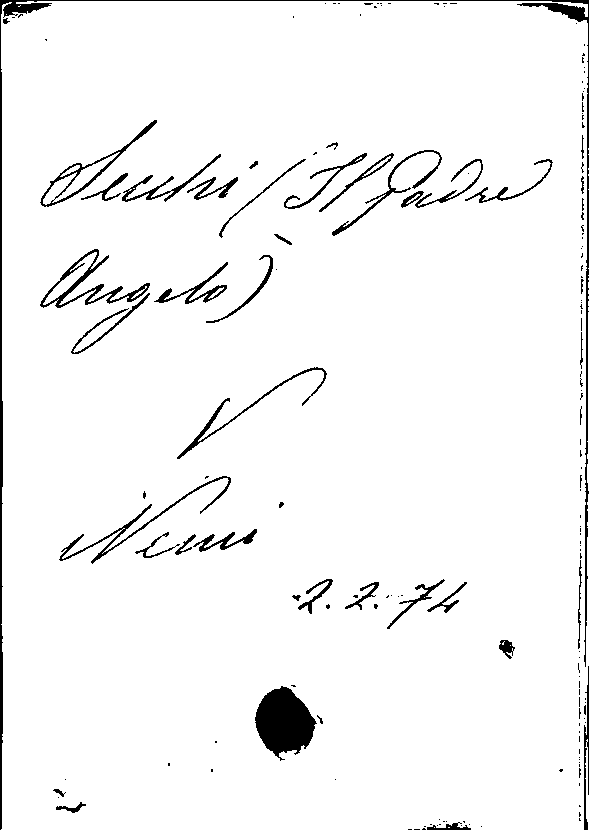 Secchi (Il Padre
Angelo)
V
Nemi
2.2.74